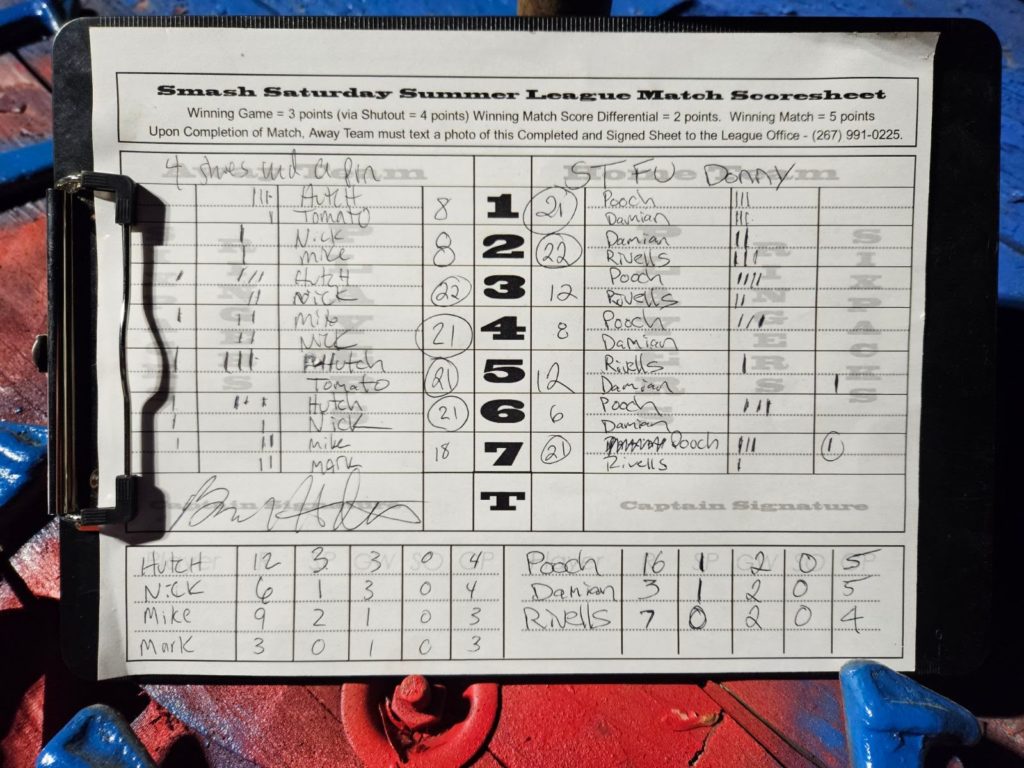 Smash Saturday Summer League Match Scoresheet
Winning Game = 3 points (via Shutout = 4 points) Winning Match Score Differential = 2 points. Winning Match = 5 points
Upon Completion of Match, Away Team must text a photo of this Completed and Signed Sheet to the League Office - (267) 991-0225.
4 shoes and a fin ST FU Donny
Hutch 8 1 21 Pooch
Tomato Damian
Nick 8 2 22 Damian
Mike Rivells
Hutch 22 3 12 Pooch
Nick Rivells
Mike 21 4 8 Pooch
Nick Damian
Hutch 21 5 12 Rivells
Tomato Damian
Hutch 21 6 6 Pooch
Nick Damian
Mike 18 7 21 Pooch 1
Mark Rivells
T
Captain Signature Captain Signature
Hutch 12 3 3 0 4 Pooch 16 1 2 0 5
Nick 6 1 3 0 4 Damian 3 1 2 0 5
Mike 9 2 1 0 3 Rivells 7 0 2 0 4
Mark 3 0 1 0 3